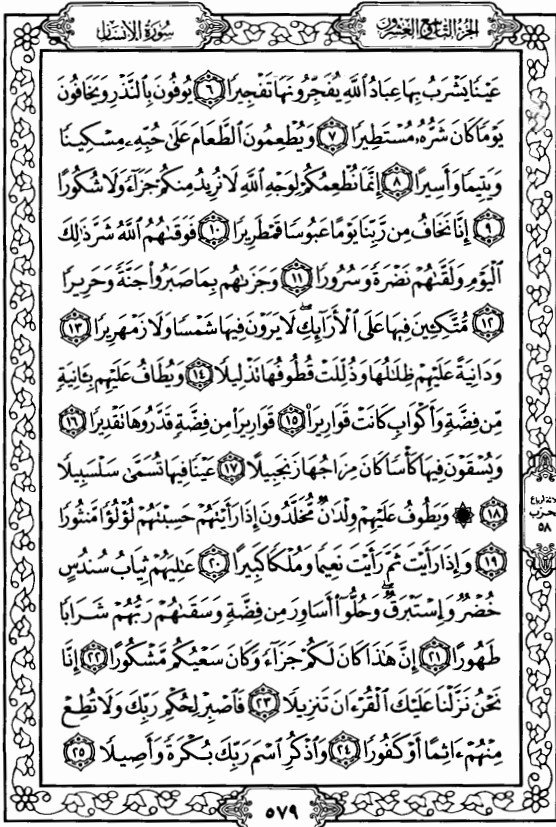 سُورَةُ الإِنسَانِ
الجُزءُ التَّاسِعُ وَالعِشْرُونَ
عَيْنًا يَشْرَبُ بِهَا عِبَادُ ٱللَّهِ يُفَجِّرُونَهَا تَفْجِيرًا ٦ يُوفُونَ بِٱلنَّذْرِ وَيَخَافُونَ
يَوْمًا كَانَ شَرُّهُۥ مُسْتَطِيرًا ٧ وَيُطْعِمُونَ ٱلطَّعَامَ عَلَىٰ حُبِّهِۦ مِسْكِينًا
وَيَتِيمًا وَأَسِيرًا ٨ إِنَّمَا نُطْعِمُكُمْ لِوَجْهِ ٱللَّهِ لَا نُرِيدُ مِنكُمْ جَزَآءً وَلَا شُكُورًا
٩ إِنَّا نَخَافُ مِن رَّبِّنَا يَوْمًا عَبُوسًا قَمْطَرِيرًا ١٠ فَوَقَىٰهُمُ ٱللَّهُ شَرَّ ذَٰلِكَ
ٱلْيَوْمِ وَلَقَّىٰهُمْ نَضْرَةً وَسُرُورًا ١١ وَجَزَىٰهُم بِمَا صَبَرُوا۟ جَنَّةً وَحَرِيرًا
١٢ مُّتَّكِـِٔينَ فِيهَا عَلَى ٱلْأَرَآئِكِ ۖ لَا يَرَوْنَ فِيهَا شَمْسًا وَلَا زَمْهَرِيرًا ١٣
وَدَانِيَةً عَلَيْهِمْ ظِلَٰلُهَا وَذُلِّلَتْ قُطُوفُهَا تَذْلِيلًا ١٤ وَيُطَافُ عَلَيْهِم بِـَٔانِيَةٍ
مِّن فِضَّةٍ وَأَكْوَابٍ كَانَتْ قَوَارِيرَا۠ ١٥ قَوَارِيرَا۟ مِن فِضَّةٍ قَدَّرُوهَا تَقْدِيرًا ١٦
وَيُسْقَوْنَ فِيهَا كَأْسًا كَانَ مِزَاجُهَا زَنجَبِيلًا ١٧ عَيْنًا فِيهَا تُسَمَّىٰ سَلْسَبِيلًا
١٨ ۞ وَيَطُوفُ عَلَيْهِمْ وِلْدَٰنٌ مُّخَلَّدُونَ إِذَا رَأَيْتَهُمْ حَسِبْتَهُمْ لُؤْلُؤًا مَّنثُورًا
١٩ وَإِذَا رَأَيْتَ ثَمَّ رَأَيْتَ نَعِيمًا وَمُلْكًا كَبِيرًا ٢٠ عَٰلِيَهُمْ ثِيَابُ سُندُسٍ
خُضْرٌ وَإِسْتَبْرَقٌ ۖ وَحُلُّوٓا۟ أَسَاوِرَ مِن فِضَّةٍ وَسَقَىٰهُمْ رَبُّهُمْ شَرَابًا
طَهُورًا ٢١ إِنَّ هَٰذَا كَانَ لَكُمْ جَزَآءً وَكَانَ سَعْيُكُم مَّشْكُورًا ٢٢ إِنَّا
نَحْنُ نَزَّلْنَا عَلَيْكَ ٱلْقُرْءَانَ تَنزِيلًا ٢٣ فَٱصْبِرْ لِحُكْمِ رَبِّكَ وَلَا تُطِعْ
مِنْهُمْ ءَاثِمًا أَوْ كَفُورًا ٢٤ وَٱذْكُرِ ٱسْمَ رَبِّكَ بُكْرَةً وَأَصِيلًا ٢٥
الحزب
٥٨
٥٧٩